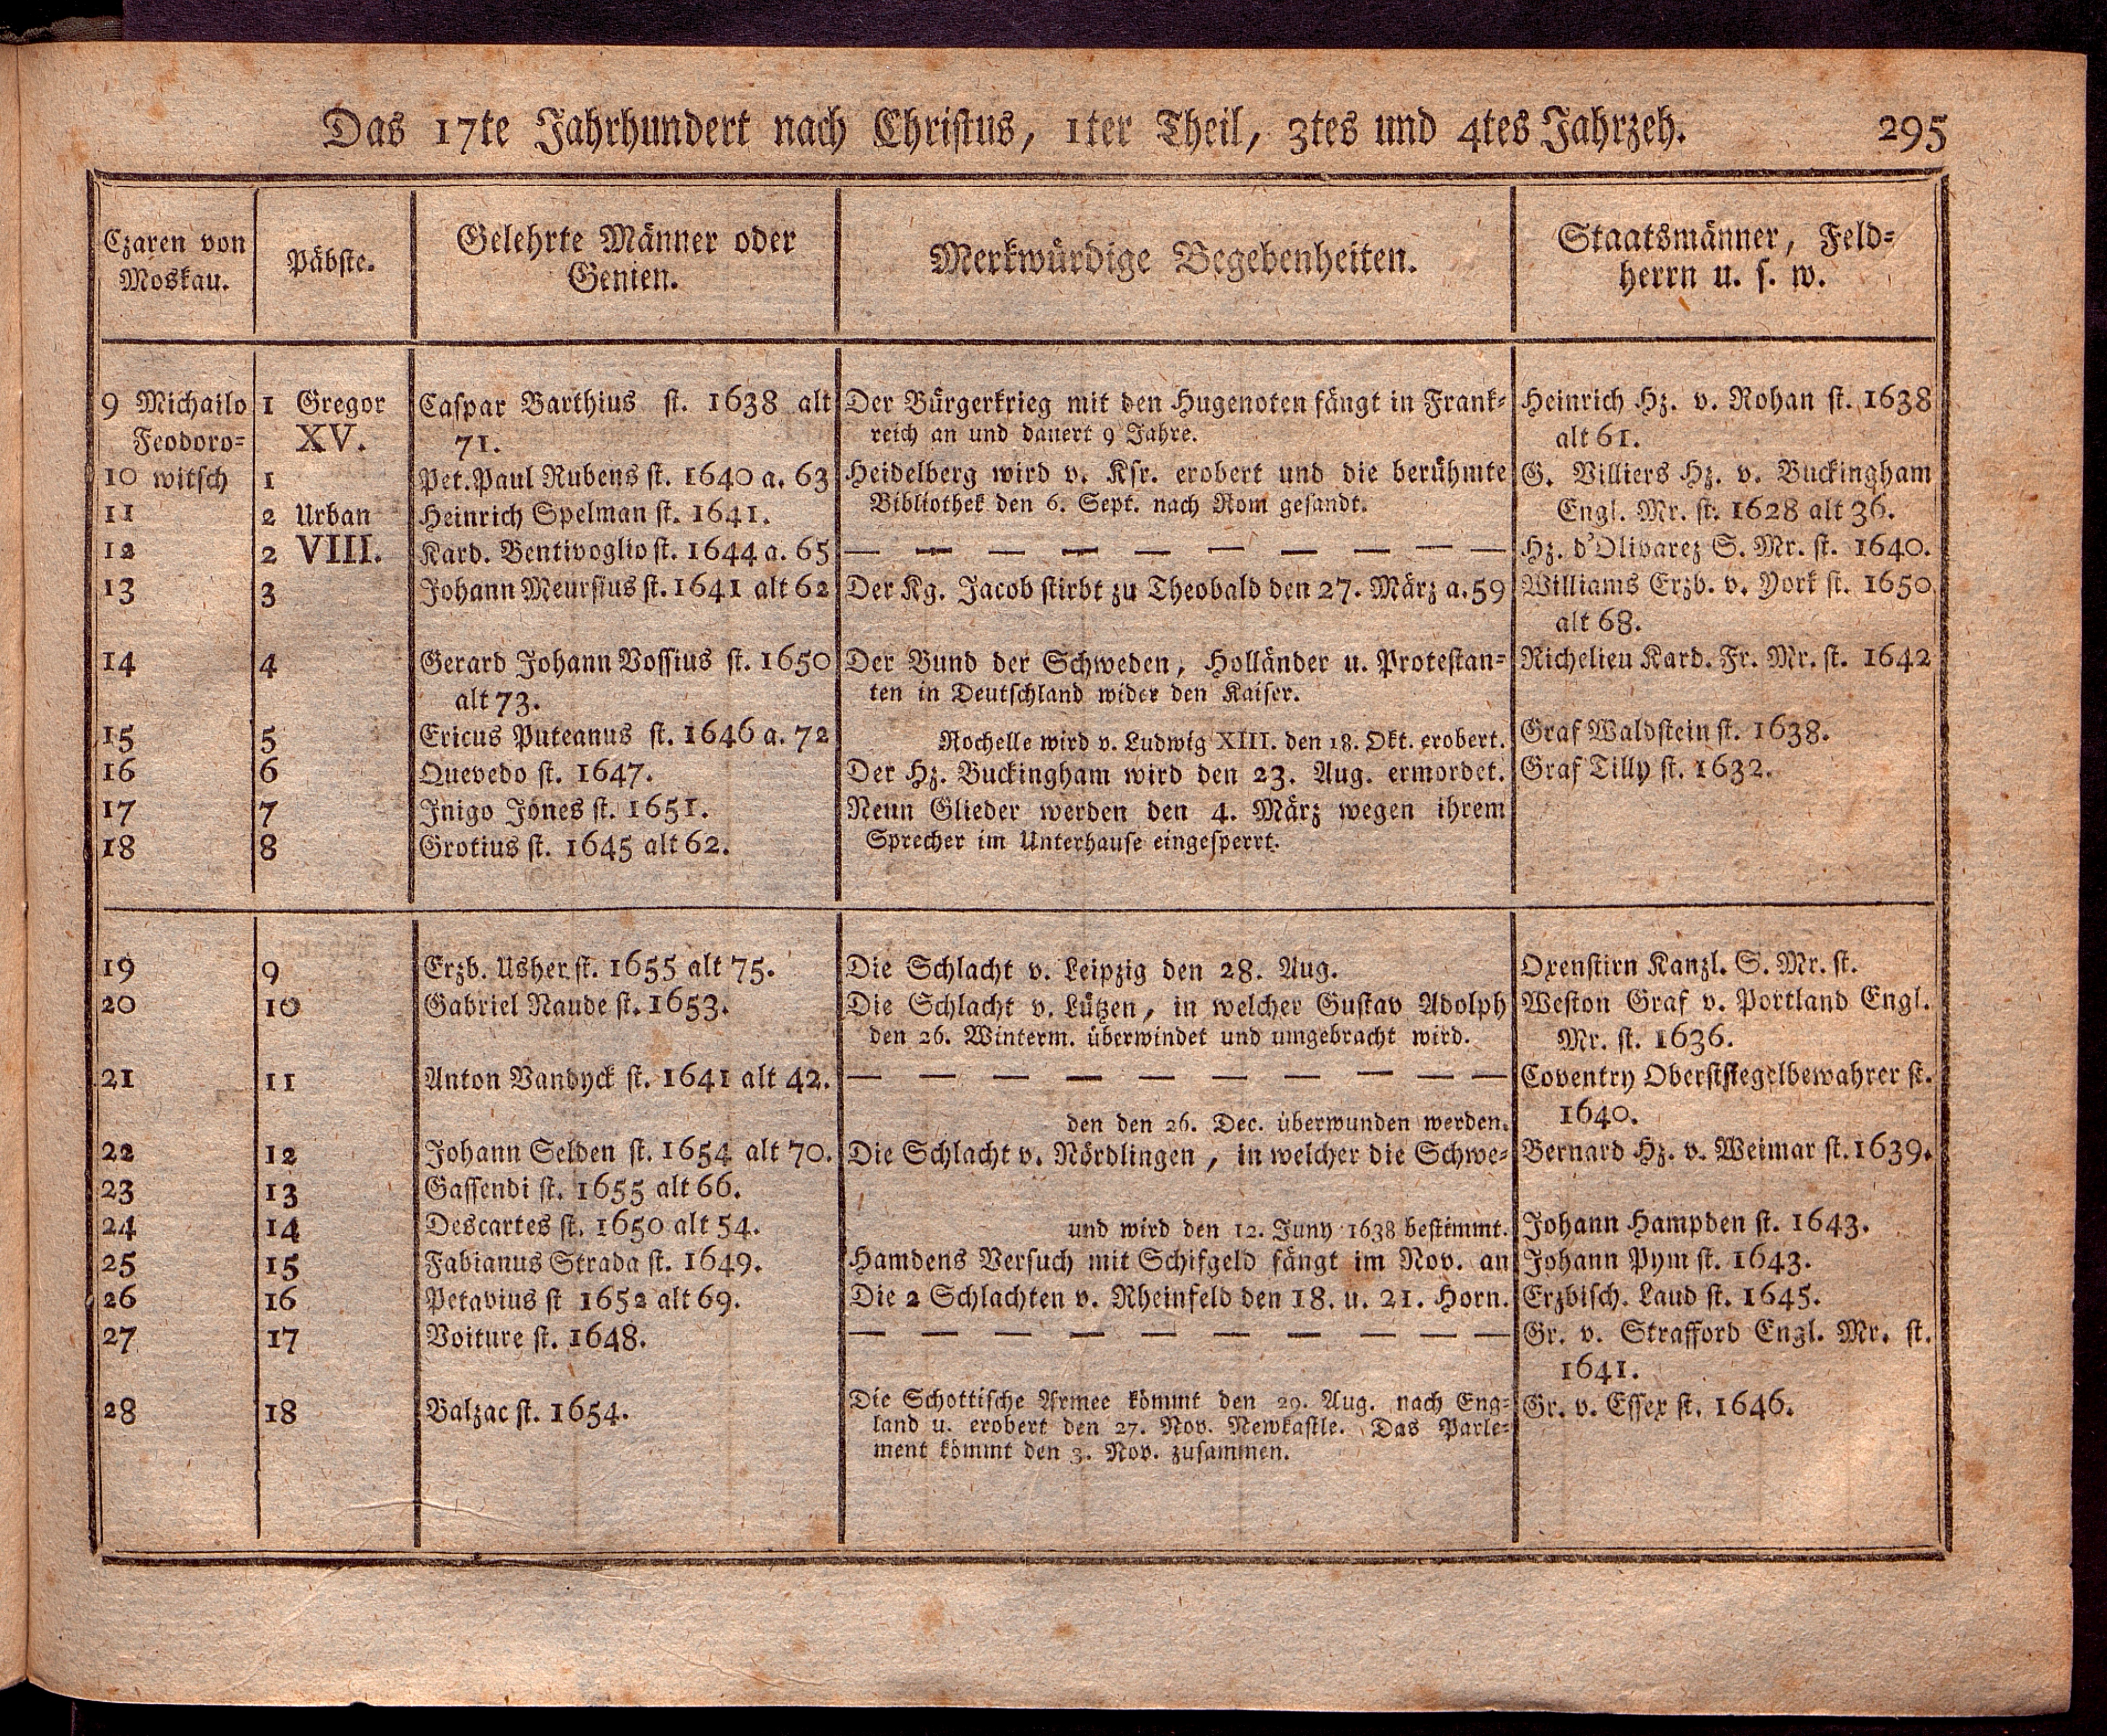 Das 17te Jahrhundert nach Christus, 1ter Theil, 3tes und 4tes Jahrzeh. 295
Czaren von
Moskau.
Päbste.
Gelehrte Männer oder
Genien.
Merkwürdige Begebenheiten.
Staatsmänner, Feld=
herrn u. s. w.
9 Michailo
Feodoro=
10 witsch
11
12
13
14
15
16
17
18
1 Gregor
XV.
1
2 Urban
2 VIII.
3
4
5
6
7
8
Caspar Barthius st. 1638 alt
71.
Pet. Paul Rubens st. 1640 a. 63
Heinrich Spelman st. 1641.
Kard. Bentivoglio st. 1644 a. 65
Johann Meursius st. 1641 alt 62
Gerard Johann Vossius st. 1650
alt 73.
Ericus Puteanus st. 1646 a. 72
Quevedo st. 1647.
Inigo Jones st. 1651.
Grotius st. 1645 alt 62.
Der Bürgerkrieg mit den Hugenoten fängt in Frank=
reich an und dauert 9 Jahre.
Heidelberg wird v. Ksr. erobert und die berühmte
Bibliothek den 6. Sept. nach Rom gesandt.
— — — — — — — — — —
Der Kg. Jacob stirbt zu Theobald den 27. März a. 59
Der Bund der Schweden, Holländer u. Protestan=
ten in Deutschland wider den Kaiser.
Rochelle wird v. Ludwig XIII. den 18. Okt. erobert.
Der Hz. Buckingham wird den 23. Aug. ermordet.
Neun Glieder werden den 4. März wegen ihrem
Sprecher im Unterhause eingesperrt.
Heinrich Hz. v. Rohan st. 1638
alt 61.
G. Villiers Hz. v. Buckingham
Engl. Mr. st. 1628 alt 36.
Hz. d'Olivarez S. Mr. st. 1640.
Williams Erzb. v. York st. 1650
alt 68.
Richelieu Kard. Fr. Mr. st. 1642
Graf Waldstein st. 1638.
Graf Tilly st. 1632.
19
20
21
22
23
24
25
26
27
28
9
10
11
12
13
14
15
16
17
18
Erzb. Usher st. 1655 alt 75.
Gabriel Naude st. 1653.
Anton Vandyck st. 1641 alt 42.
Johann Selden st. 1654 alt 70.
Gassendi st. 1655 alt 66.
Descartes st. 1650 alt 54.
Fabianus Strada st. 1649.
Petavius st 1652 alt 69.
Voiture st. 1648.
Balzac st. 1654.
Die Schlacht v. Leipzig den 28. Aug.
Die Schlacht v. Lützen, in welcher Gustav Adolph
den 26. Winterm. überwindet und umgebracht wird.
— — — — — — — — — —
den den 26. Dec. überwunden werden.
Die Schlacht v. Nördlingen, in welcher die Schwe=
und wird den 12. Juny 1638 bestimmt.
Hamdens Versuch mit Schifgeld fängt im Nov. an
Die 2 Schlachten v. Rheinfeld den 18. u. 21. Horn.
— — — — — — — — — —
Die Schottische Armee kömmt den 29. Aug. nach Eng=
land u. erobert den 27. Nov. Newkastle. Das Parle=
ment kömmt den 3. Nov. zusammen.
Oxenstirn Kanzl. S. Mr. st.
Weston Graf v. Portland Engl.
Mr. st. 1636.
Coventry Oberstsiegelbewahrer st.
1640.
Bernard Hz. v. Weimar st. 1639.
Johann Hampden st. 1643.
Johann Pym st. 1643.
Erzbisch. Laud st. 1645.
Gr. v. Strafford Engl. Mr. st.
1641.
Gr. v. Essex st. 1646.